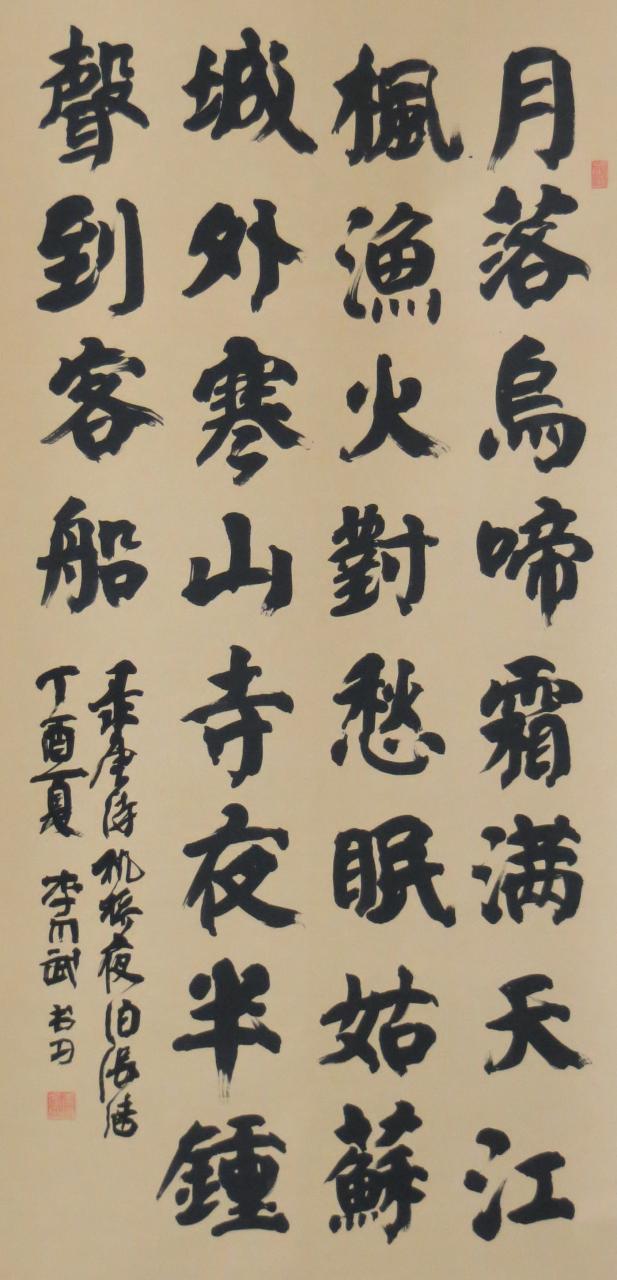 月落烏啼霜满天江
楓漁火對愁眠姑蘇
城外寒山寺夜半鍾
聲到客船
唐诗枫桥夜泊张继
丁酉夏 李 武书